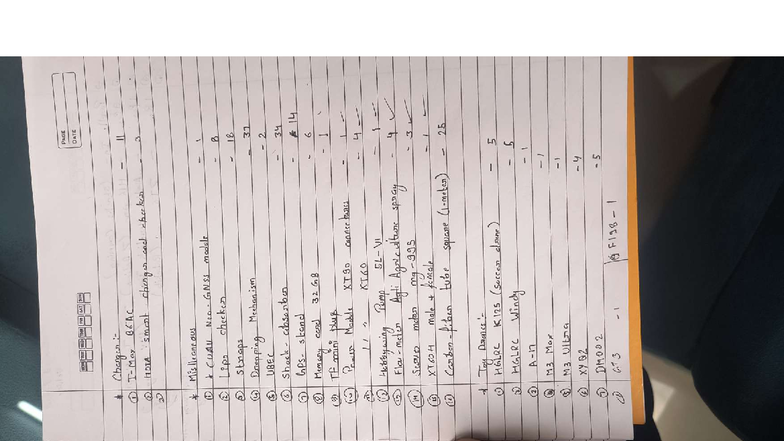 PAGE
DATE
* Charger :-
① T-Max B6AC - 11
② HOTA smart charger and checker - 3
③
* Miscellaneous
① + CUAV Neo. GNSS module - 1
② Lipo checker - 8
③ Straps - 18
④ Dropping Mechanism - 37
⑤ UBEC - 2
⑥ Shock-absorber - 34
⑦ GPS. stand - 14
⑧ Memory card 32 GB - 6
⑨ TF mini plus - 1
⑩ Power Module XT90 connectors - 1
⑪ XT60 - 4
⑫ Hobbywing Pump 5L - 1
⑬ Flow-meter Agriculture spray - 4 ✓
⑭ Servo motor mg-995 - 3 ✓
⑮ XT60H male & female - 1 ✓
⑯ Carbon-fiber tube square (1-meter) - 25
* Toy Device :-
① HGLRC K125 (soccer drone) - 5
② HGLRC Windy - 5
③ A-17 - 1
④ M3 Max - 1
⑤ M3 Ultra - 1
⑥ XY Q2 - 4
⑦ DM002 - 5
F198 - 1